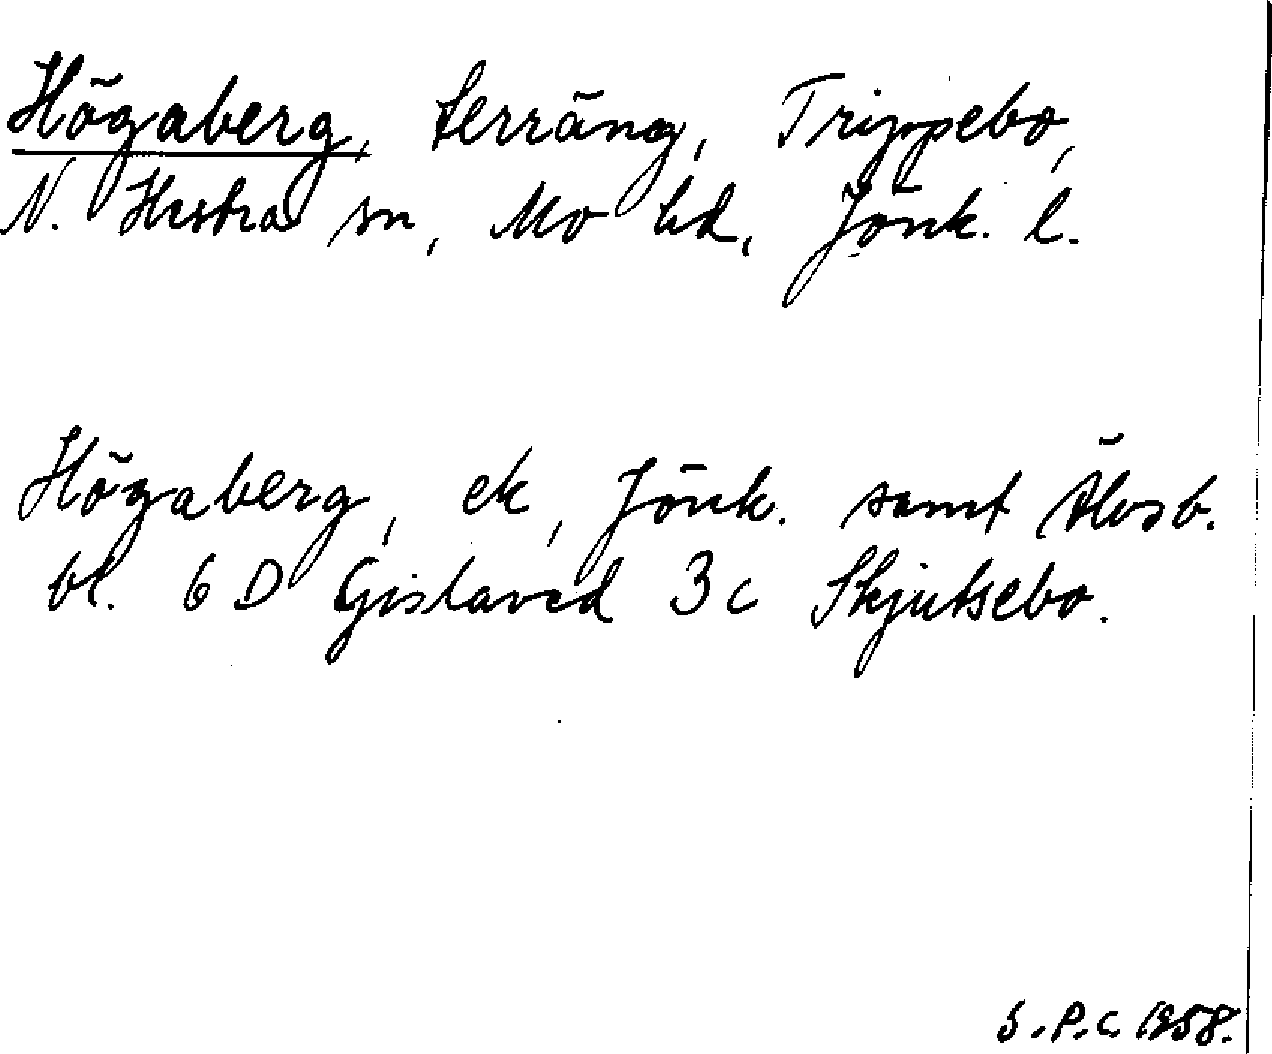 Högaberg, terräng, Trippebo,
N. Hestra sn, Mo hd, Jönk. l.
Högaberg, ek, Jönk. samt Älvsb.
bl. 6 D Gislaved 3 c Skjutsebo.
S.P.C. 1958.